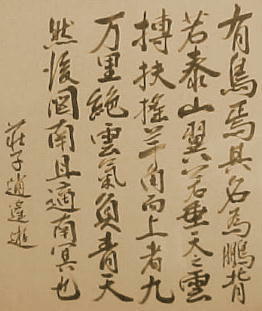 有鳥焉其名為鵬背
若泰山翼若垂天之雲
摶扶搖羊角而上者九
万里絕雲氣負青天
然後圖南且適南冥也
莊子逍遙遊